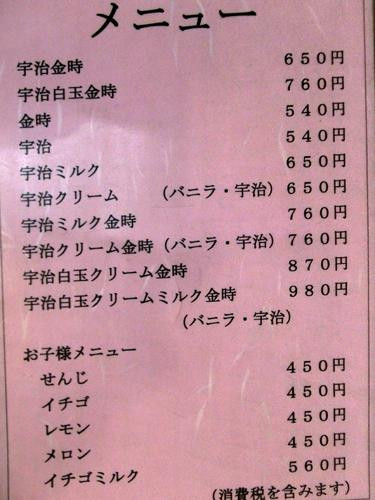 メニュー
宇治金時 650円
宇治白玉金時 760円
金時 540円
宇治 540円
宇治ミルク 650円
宇治クリーム (バニラ・宇治) 650円
宇治ミルク金時 760円
宇治クリーム金時 (バニラ・宇治) 760円
宇治白玉クリーム金時 870円
宇治白玉クリームミルク金時 980円
(バニラ・宇治)
お子様メニュー
せんじ 450円
イチゴ 450円
レモン 450円
メロン 450円
イチゴミルク 560円
(消費税を含みます)